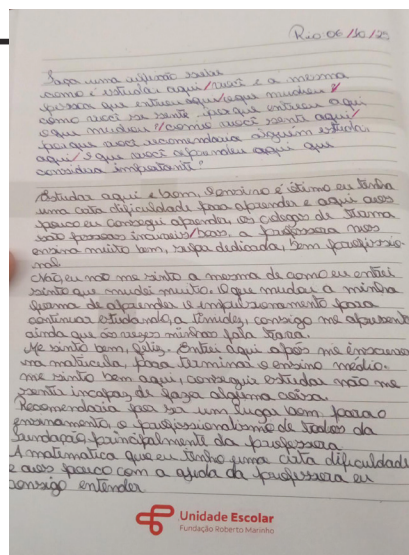 Rio 06/10/25
Faça uma reflexão sobre
como é estudar aqui/você é a mesma
pessoa que entrou aqui/o que mudou?/
como você se sente, porque entrou aqui
o que mudou?/como você sente aqui/
porque você recomendaria alguém estudar
aqui/o que você aprendeu aqui que
considera importante?
Estudar aqui e bom, o ensino é ótimo eu tinha
uma certa dificuldade para aprender e aqui aos
pouco eu consegui aprender, os colegas de turma
são pessoas incriveis/boas, a professora nos
ensina muito bem, super dedicada, bem profissio-
nal
Não, eu não me sinto a mesma de como eu entrei
sinto que mudei muito. O que mudou a minha
forma de aprender e impulsionamento para
continuar estudando, a timidez, consigo me apresentar
ainda que às vezes minhas fala trava.
Me sinto bem, feliz. Entrei aqui após me inscrever
na matricula, para terminar o ensino médio.
me sinto bem aqui, consegui estudar não me
sentir incapaz de fazer alguma coisa.
Recomendaria por ser um lugar bom para o
ensinamento, o profissionalismo de todos da
fundação, principalmente da professora
A matematica que eu tenho uma certa dificuldade
e aos pouco com a ajuda da professora eu
consigo entender
Unidade Escolar
Fundação Roberto Marinho